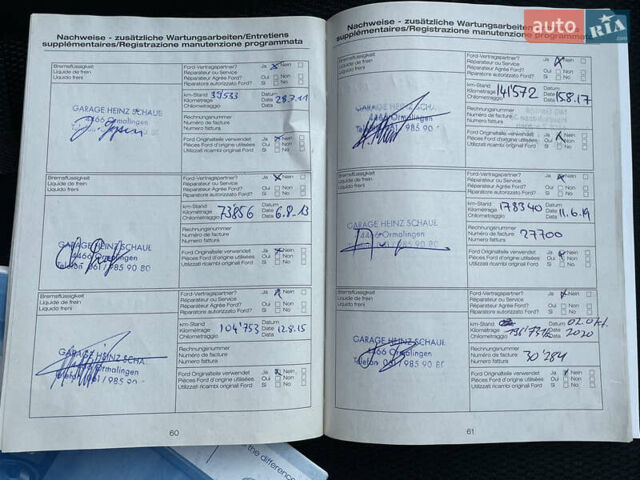 Nachweise - zusätzliche Wartungsarbeiten/Entretiens
supplémentaires/Registrazione manutenzione programmata
Bremsflüssigkeit
Liquide de frein
Liquido freni
Ford-Vertragspartner? Ja Nein
Réparateur ou Service
Réparateur Agrée Ford? Oui Non
Riparatore autorizzato Ford? Si No
km-Stand
Kilométrage
Chilometraggio
39'533
Datum
Date
Data
28.7.11
GARAGE HEINZ SCHAUB
4466 Ormalingen
Rechnungsnummer
Numéro de facture
Numero fattura
Ford Originalteile verwendet Ja Nein
Pièces Ford d'origine utilisées Oui Non
Utilizzati ricambi original Ford Si No
Bremsflüssigkeit
Liquide de frein
Liquido freni
Ford-Vertragspartner? Ja Nein
Réparateur ou Service
Réparateur Agrée Ford? Oui Non
Riparatore autorizzato Ford? Si No
km-Stand
Kilométrage
Chilometraggio
73856
Datum
Date
Data
6.8.13
GARAGE HEINZ SCHAUB
4466 Ormalingen
Telefon 061/985 90 80
Rechnungsnummer
Numéro de facture
Numero fattura
Ford Originalteile verwendet Ja Nein
Pièces Ford d'origine utilisées Oui Non
Utilizzati ricambi original Ford Si No
Bremsflüssigkeit
Liquide de frein
Liquido freni
Ford-Vertragspartner? Ja Nein
Réparateur ou Service
Réparateur Agrée Ford? Oui Non
Riparatore autorizzato Ford? Si No
km-Stand
Kilométrage
Chilometraggio
104'753
Datum
Date
Data
12.8.15
GARAGE HEINZ SCHA
4466 Ormalingen
Telefon 061/985 90
Rechnungsnummer
Numéro de facture
Numero fattura
Ford Originalteile verwendet Ja Nein
Pièces Ford d'origine utilisées Oui Non
Utilizzati ricambi original Ford Si No
60
Nachweise - zusätzliche Wartungsarbeiten
supplémentaires/Registrazione manutenzione programmata
Bremsflüssigkeit
Liquide de frein
Liquido freni
Ford-Vertragspartner? Ja Nein
Réparateur ou Service
Réparateur Agrée Ford? Oui Non
Riparatore autorizzato Ford? Si No
km-Stand
Kilométrage
Chilometraggio
141'572
Datum
Date
Data
15.8.17
GARAGE HEINZ SCHAUB
4466 Ormalingen
Rechnungsnummer
Numéro de facture
Numero fattura
Ford Originalteile verwendet Ja Nein
Pièces Ford d'origine utilisées Oui Non
Utilizzati ricambi original Ford Si No
Bremsflüssigkeit
Liquide de frein
Liquido freni
Ford-Vertragspartner? Ja Nein
Réparateur ou Service
Réparateur Agrée Ford? Oui Non
Riparatore autorizzato Ford? Si No
km-Stand
Kilométrage
Chilometraggio
178340
Datum
Date
Data
11.6.19
GARAGE HEINZ SCHAUB
4466 Ormalingen
Telefon 061/985 90 80
Rechnungsnummer
Numéro de facture
Numero fattura
27700
Ford Originalteile verwendet Ja Nein
Pièces Ford d'origine utilisées Oui Non
Utilizzati ricambi original Ford Si No
Bremsflüssigkeit
Liquide de frein
Liquido freni
Ford-Vertragspartner? Ja Nein
Réparateur ou Service
Réparateur Agrée Ford? Oui Non
Riparatore autorizzato Ford? Si No
km-Stand
Kilométrage
Chilometraggio
Datum
Date
Data
2020
GARAGE HEINZ SCHAUB
4466 Ormalingen
Telefon 061/985 90 80
Rechnungsnummer
Numéro de facture
Numero fattura
30'284
Ford Originalteile verwendet Ja Nein
Pièces Ford d'origine utilisées Oui Non
Utilizzati ricambi original Ford Si No
61
auto RIA.com
the difference